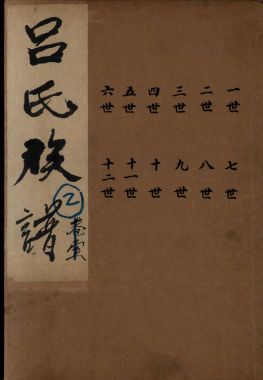 吕氏族譜
②
一世
二世
三世
四世
五世
六世
七世
八世
九世
十世
十一世
十二世